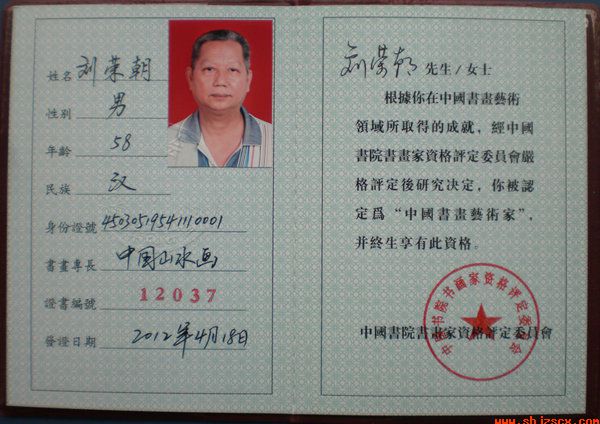 姓名 刘荣朝
性别 男
年齡 58
民族 汉
身份證號
書畫專長 中国山水画
證書編號 12037
發證日期 2012年4月18日
刘荣朝 先生/女士
根據你在中國書畫藝術
領域所取得的成就，經中國
書院書畫家資格評定委員會嚴
格評定後研究決定，你被認
定爲“中國書畫藝術家”，
并終生享有此資格。
中国书院书画家资格评定委员会
中國書院書畫家資格評定委員會